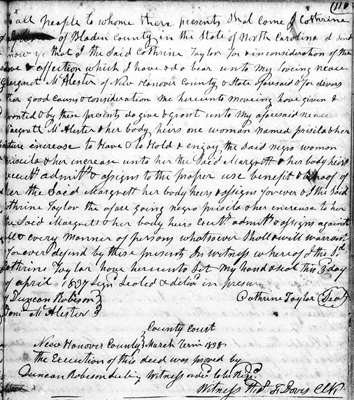 all people to whome these presents Shall Come I Cathrine
of Bladen County in the State of North Carolina d send
know ye that I the Said Cathrine Taylor for & inconsideration of the
love & affection which I have & do bear unto My loveing neace
Margaret McAlester of New Hanover County & State aforesaid & for divers
good Causes & Consideration Me hereunto moveing have given &
granted & by these presents do give & grant unto My aforesaid neace
Margrett McAlester & her body heirs one woman Named priscila & her
future increase to Have & to Hold & enjoy the Said negro woman
Priscila & her increase unto her the Said Margrett & her body heirs
Execut admint & assigns to the proper use benefit & behoof of
her the Said Margrett her body heirs & assigns forever & I the Said
Cathrine Taylor the afore going negro priscila & her increase to her
the Said Margret & her body heirs Exert admint & assigns against
all & every Manner of persons whatsoever Shall & will warrant
forever defend by these presents In Witness whereof I the Sd
Cathrine Taylor have hereunto Set My hand & Seal this 3 day
of april 1837 Sign Sealed & deliv in presen
Duncan Robison
Cathrine Taylor (Seal)
McAlester
County Court
New Hanover County March Term 1838
the Execution of this deed was proved by
Duncan Robison Witness
Witness Davis Clk